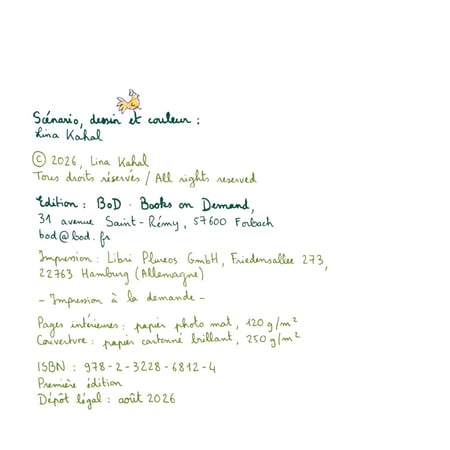 Scénario, dessin et couleur :
Lina Kahal
© 2026, Lina Kahal
Tous droits réservés / All rights reserved
Édition : BoD · Books on Demand,
31 avenue Saint-Rémy, 57600 Forbach
bod@bod.fr
Impression : Libri Plureos GmbH, Friedensallee 273,
22763 Hamburg (Allemagne)
- Impression à la demande -
Pages intérieures : papier photo mat, 120 g/m²
Couverture : papier cartonné brillant, 250 g/m²
ISBN : 978-2-3228-6812-4
Première édition
Dépôt légal : août 2026